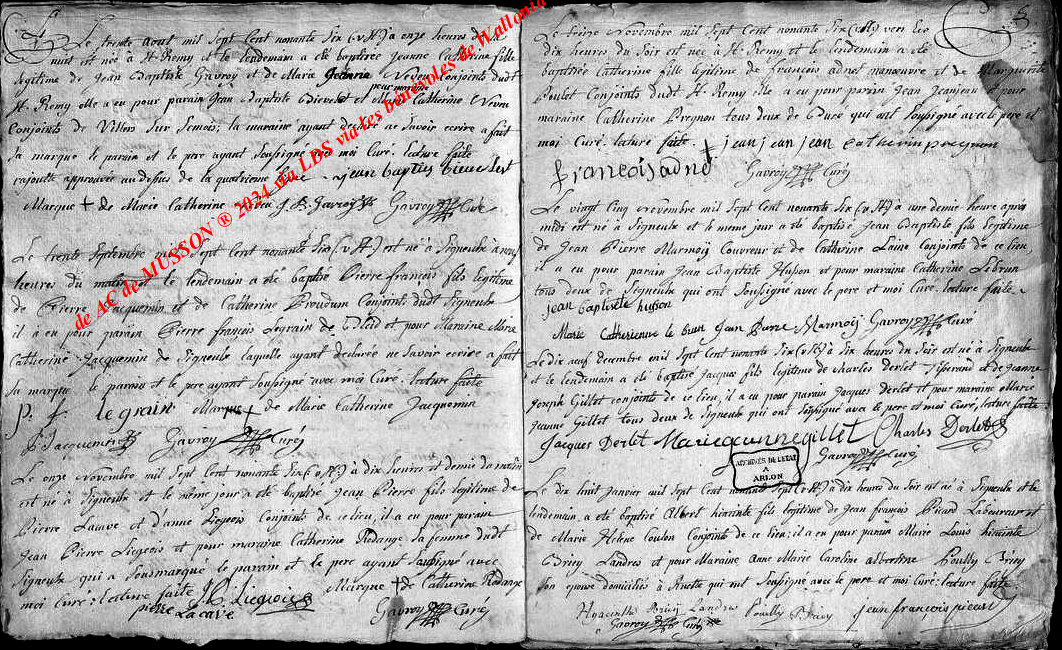 Le trente Aout mil Sept Cent nonante Six (v st) a onze heures du
nuit est née à St Remy et le lendemain a été baptisée Jeanne Catherine fille
légitime de Jean Baptiste Gavroy et de Marie Jeanne Neveu Conjoints dudt
pour maraine
St Remy elle a eu pour parain Jean Baptiste et Marie Catherine Neveu
Conjoints de Villers Sur Semois; la maraine ayant declaré ne Savoir ecrire a fait
Sa marque le parain et le pere ayant Soussigné avec moi Curé. lecture faite
rajoutte approuvée au dessus de la quatrieme ligne
Marque + de Marie Catherine Neveu J. B. Gavroy Gavroy Curé
Le trente Septembre mil Sept Cent nonante Six (v st) est né à Signeulx à neuf
heures du matin et le lendemain a été baptisé Pierre françois fils légitime
de Pierre Jacquemin et de Catherine Conjoints dudt Signeulx
il a eu pour parain Pierre françois Legrain de et pour Maraine Marie
Catherine Jacquemin de Signeulx laquelle ayant declarée ne Savoir ecrire a fait
sa marque le parain et le pere ayant Soussigné avec moi Curé. lecture faite
P. f. legrain Marque + de Marie Catherine Jacquemin
P Jacquemin Gavroy Curé
Le onze Novembre mil Sept Cent nonante Six (v st) à dix heures et demie du matin
est né à Signeulx et le même jour a été baptisé Jean Pierre fils legitime de
Pierre Lacave et d'anne Liegeois Conjoints de ce lieu, il a eu pour parain
Jean Pierre Liegeois et pour maraine Catherine Rodange sa femme dudt
Signeulx qui a Sousmarqué le parain et le pere ayant Soussigné avec
moi Curé: lecture faite Marque + de Catherine Rodange
J. P. Liegeois
pierre Lacave Gavroy Curé
Le treize Novembre mil Sept Cent nonante Six (v st) vers les
dix heures du Soir est née à St Remy et le lendemain a été
baptisée Catherine fille legitime de François adné manœuvre et de Marguerite
Poulet Conjoints dudt St Remy elle a eu pour parain Jean Jeanjean et pour
maraine Catherine Pregnon tous deux de qui ont Soussigné avec le pere et
moi Curé. lecture faite jean jean jean catherin pregnon
françois adné Gavroy Curé
Le vingt Cinq Novembre mil Sept Cent nonante Six (v st) à une demie heure après
midi est né à Signeulx et le meme jour a été baptisé Jean Baptiste fils legitime
de Jean Pierre Marmoij Couvreur et de Catherine Laine Conjoints de ce lieu
il a eu pour parain Jean Baptiste Husson et pour maraine Catherine Lebrun
tous deux de Signeulx qui ont Soussigné avec le pere et moi Curé. lecture faite
jean baptiste husson
Marie Catherienne le brun Jean Pierre Marmoij Gavroy Curé
Le dix neuf decembre mil Sept Cent nonante Six (v st) à Six heures du Soir est né à Signeulx
et le lendemain a été baptisé Jacques fils legitime de Charles Derlet Tisserand et de Jeanne
Joseph Gillet conjoints de ce lieu, il a eu pour parain Jacques Derlet et pour maraine Marie
Jeanne Gillet tous deux de Signeulx qui ont Soussigné avec le pere et moi Curé, lecture faite
Jacques Derlet Marie jeanne gillet Charles Derlet
Gavroy Curé
ARCHIVES DE L'ETAT
A
ARLON
Le dix huit Janvier mil Sept Cent nonante Sept (v st) à dix heures du Soir est né à Signeulx et le
lendemain a été baptisé Albert hiacinte fils legitime de Jean françois Picard Laboureur et
de Marie Helene Coulon Conjoints de ce lieu; il a eu pour parain Marie Louis hiacinte
Briey Landres et pour Maraine Anne Marie Caroline albertine Pouilly Briey
Son epouse domiciliés à Ruette qui ont Soussigné avec le pere et moi Curé: lecture faite
Hyacinthe Briey Landres Pouilly Briey jean françois
Gavroy Curé
de AC de MUSSON ® 2024 via LDS via les bénévoles de Wallonie